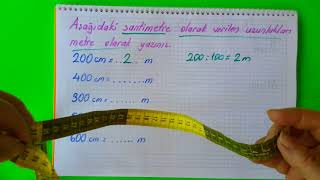 Aşağıdaki santimetre olarak verilen uzunlukları
metre olarak yazınız.
200 cm = ..2.. m 200 : 100 = 2 m
400 cm = ....... m
300 cm = ....... m
600 cm = ....... m